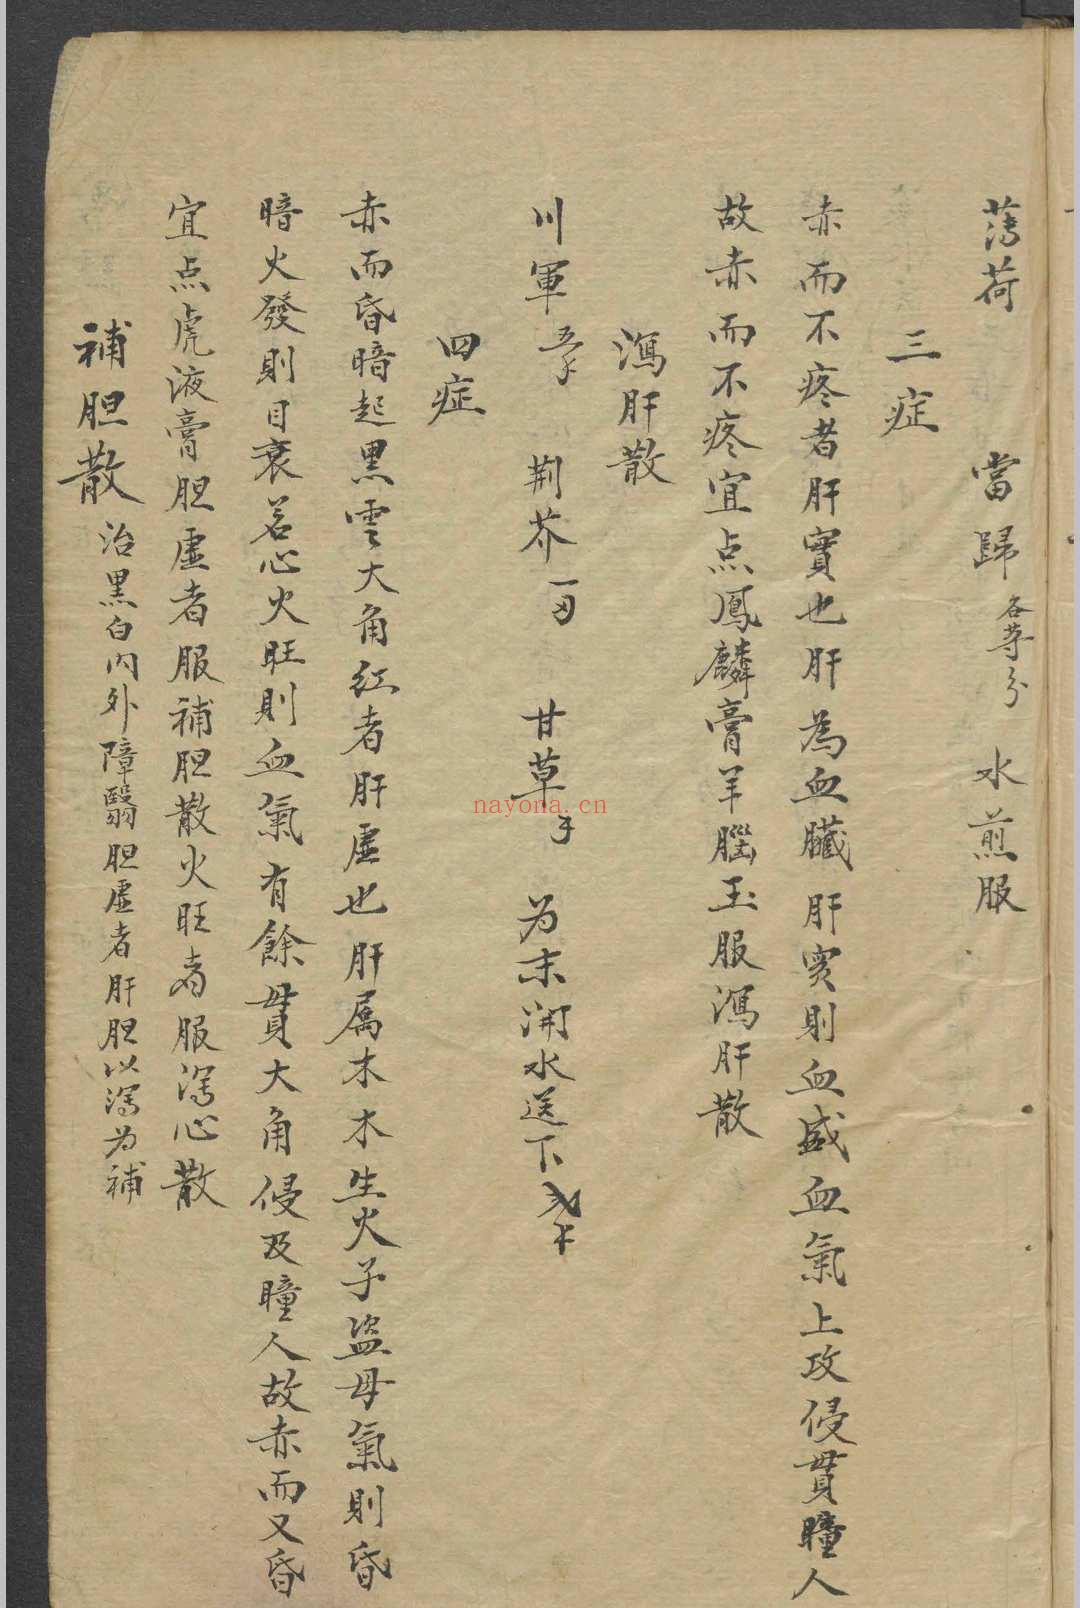 薄荷 當歸 各等分 水煎服
三症
赤而不疼者肝實也肝為血臟肝实則血盛血氣上攻侵貫瞳人
故赤而不疼宜点鳳麟膏羊腦玉服瀉肝散
瀉肝散
川軍 荆芥 甘草 为末開水送下
四症
赤而昏暗起黑雲大角红者肝虛也肝属木木生火子盗母氣則昏
暗火發則目衰若心火旺則血氣有餘貫大角侵及瞳人故赤而又昏
宜点虎液膏胆虛者服補胆散火旺者服瀉心散
補胆散 治黒白内外障翳胆虛者肝胆以瀉为補
nayona.cn